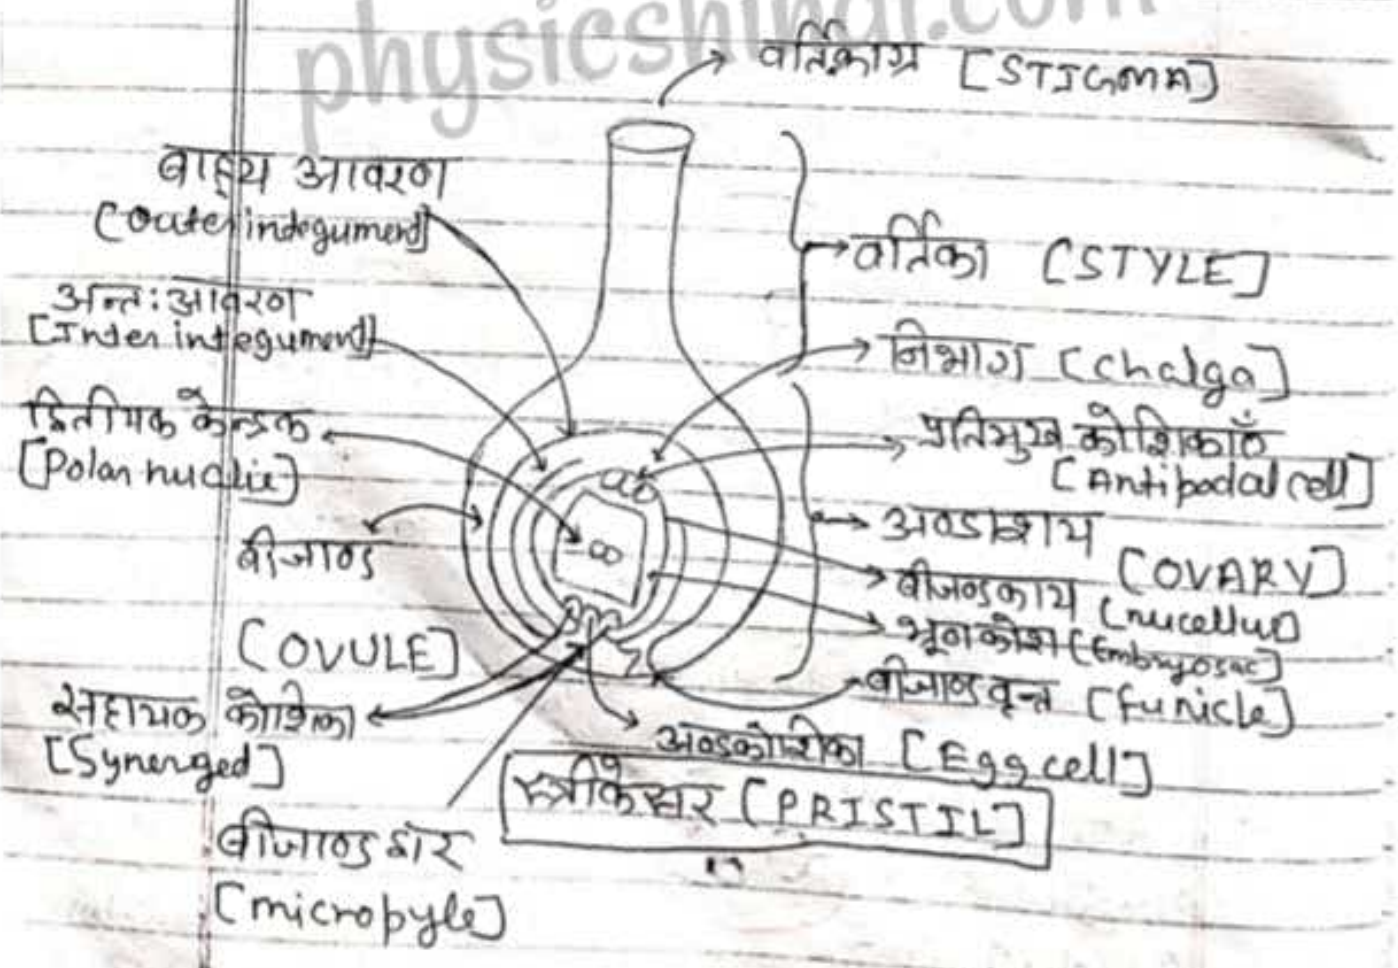 physicshindi.com
वर्तिकाग्र [STIGMA]
बाह्य आवरण
[Outer indegument]
वर्तिका [STYLE]
अन्त:आवरण
[Inter integument]
निभाग [Chalga]
द्वितीयक केन्द्रक
[Polar nuclie]
प्रतिमुख कोशिकाएँ
[Antipodal cell]
अण्डाशय
[OVARY]
बीजाण्ड
[OVULE]
बीजण्डकाय [nucellus]
भ्रूनकोश [Embryosac]
बीजाण्डवृन्त [funicle]
सहायक कोशिका
[Synerged]
अण्डकोशिका [Egg cell]
स्त्रीकेसर [PRISTIL]
बीजाण्डद्वार
[micropyle]